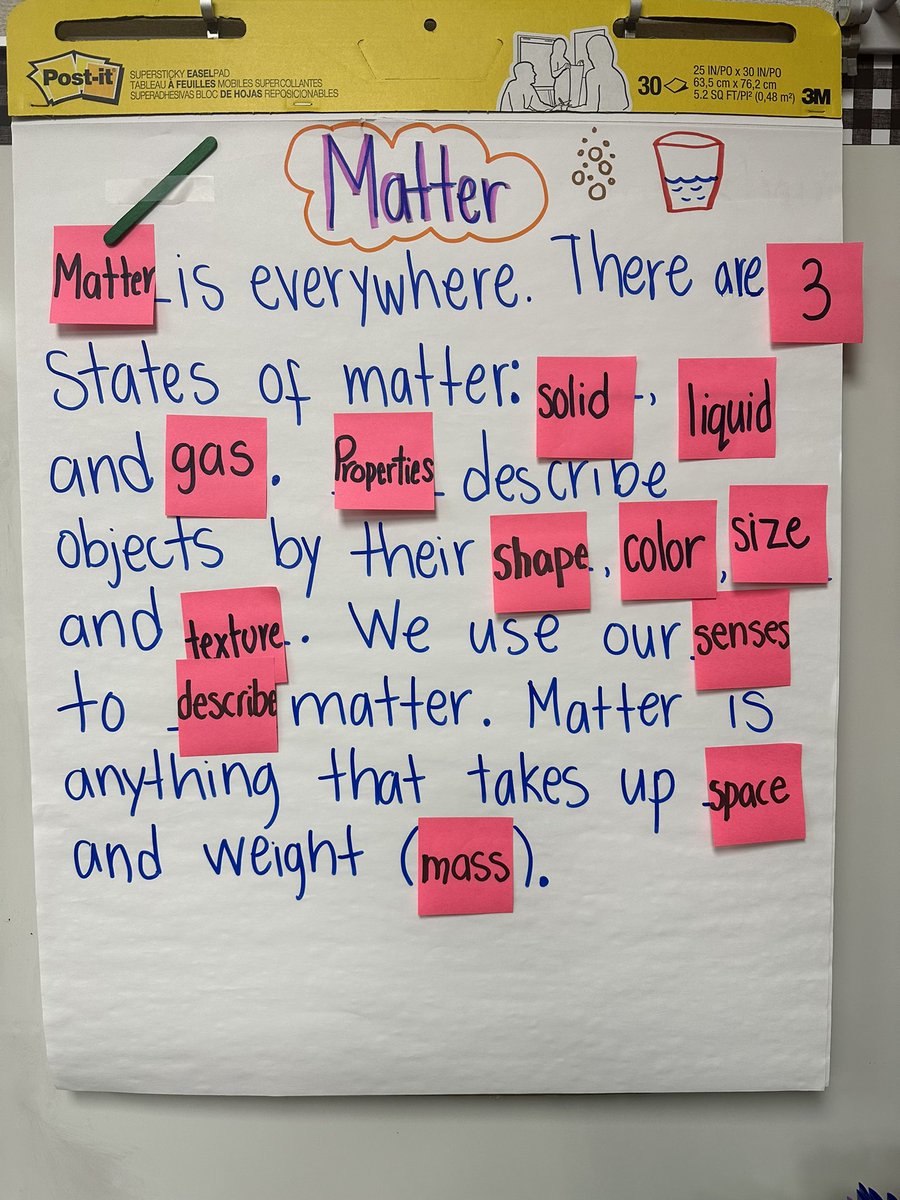 Post-it
SUPERSTICKY EASELPAD
TABLEAU À FEUILLES MOBILES SUPERCOLLANTES
SUPERADHESIVAS BLOC DE HOJAS REPOSICIONABLES
30
25 IN/PO x 30 IN/PO
63,5 cm x 76,2 cm
5.2 SQ FT/PI² (0,48 m²)
3M
Matter
Matter is everywhere. There are 3
States of matter: solid, liquid
and gas. Properties describe
objects by their shape, color, size
and texture. We use our senses
to describe matter. Matter is
anything that takes up space
and weight (mass).